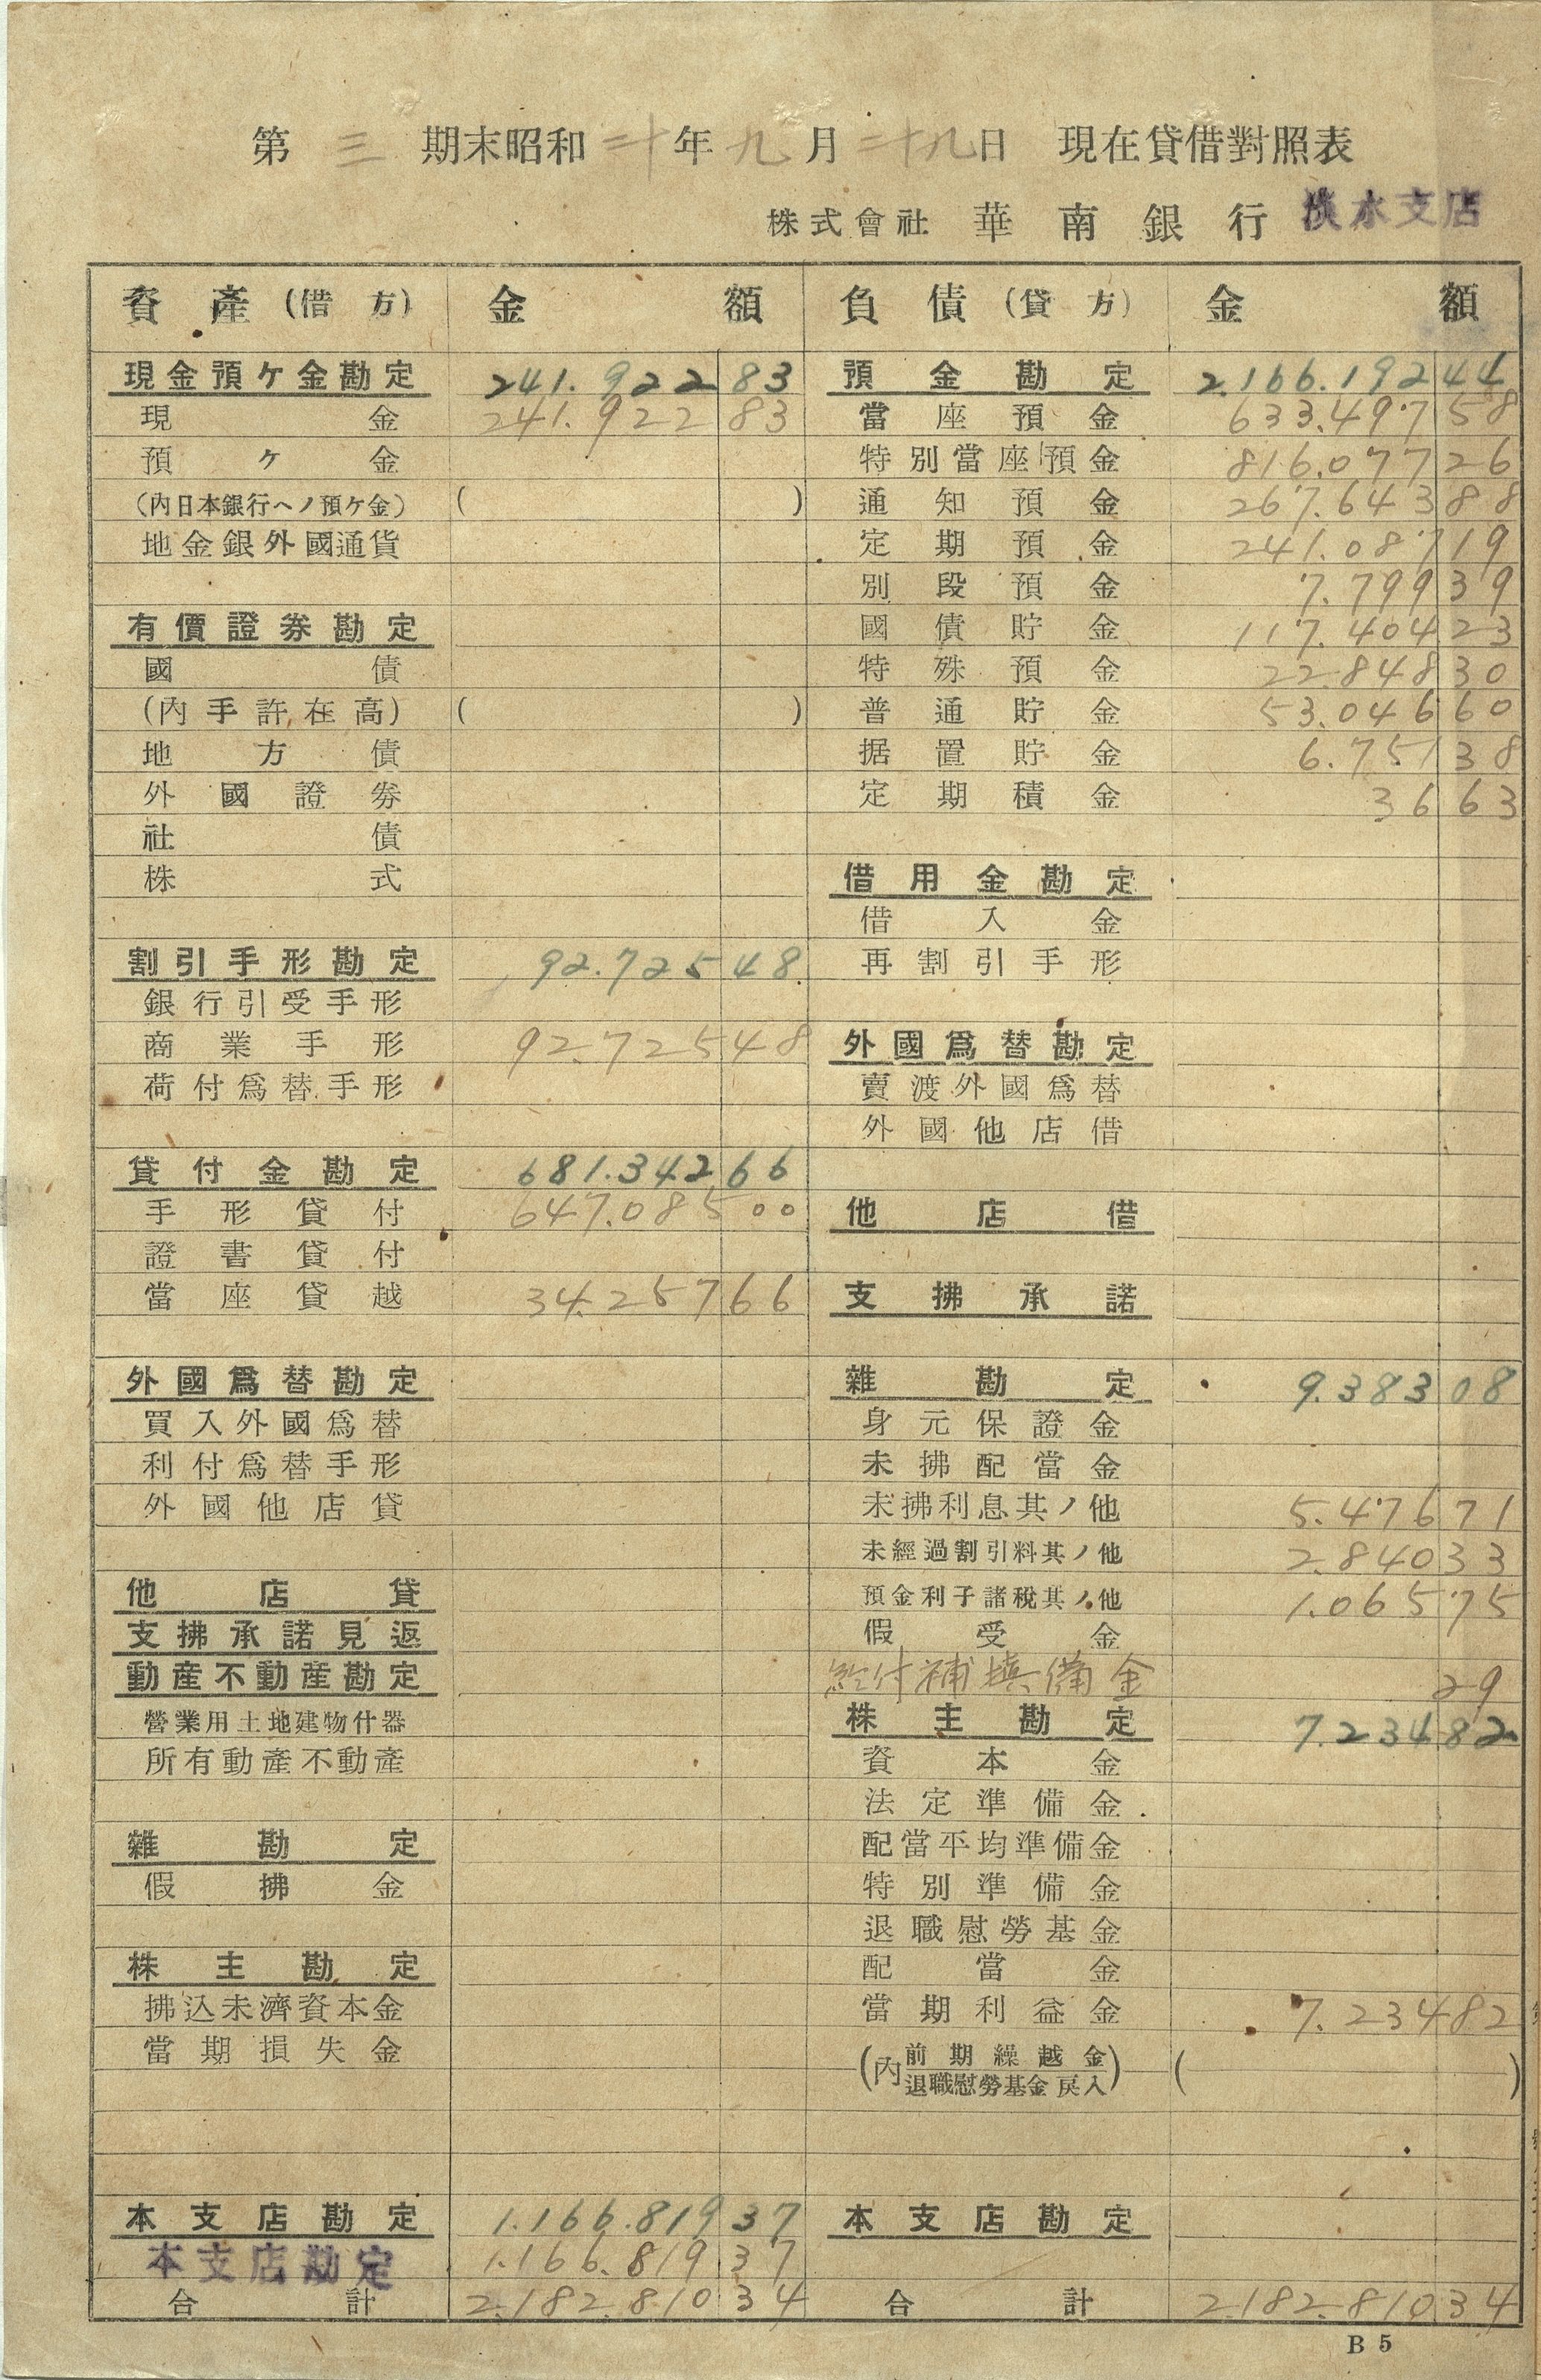 第 三 期末昭和 二十 年 九 月 二十九 日 現在貸借對照表
株式會社 華南銀行 淡水支店
資產(借方) 金額 負債(貸方) 金額
現金預ケ金勘定 241.922 83 預金勘定 2.166.192 44
現金 241.922 83 當座預金 633.497 58
預ケ金 特別當座預金 816.077 26
(內日本銀行ヘノ預ケ金) ( ) 通知預金 267.643 88
地金銀外國通貨 定期預金 241.087 19
別段預金 7.799 39
有價證券勘定 國債貯金 117.404 23
國債 特殊預金 22.848 30
(內手許在高) ( ) 普通貯金 53.046 60
地方債 据置貯金 6.751 38
外國證券 定期積金 36 63
社債
株式 借用金勘定
借入金
割引手形勘定 92.725 48 再割引手形
銀行引受手形
商業手形 92.725 48 外國爲替勘定
荷付爲替手形 賣渡外國爲替
外國他店借
貸付金勘定 681.342 66
手形貸付 647.085 00 他店借
證書貸付
當座貸越 34.257 66 支拂承諾
外國爲替勘定 雜勘定 9.383 08
買入外國爲替 身元保證金
利付爲替手形 未拂配當金
外國他店貸 未拂利息其ノ他 5.476 71
未經過割引料其ノ他 2.840 33
他店貸 預金利子諸稅其ノ他 1.065 75
支拂承諾見返 假受金
動產不動產勘定 給付補塡備金 29
營業用土地建物什器 株主勘定 7.234 82
所有動產不動產 資本金
法定準備金
雜勘定 配當平均準備金
假拂金 特別準備金
退職慰勞基金
株主勘定 配當金
拂込未濟資本金 當期利益金 7.234 82
當期損失金 (內 前期繰越金
退職慰勞基金戾入) ( )
本支店勘定 1.166.819 37 本支店勘定
本支店勘定 1.166.819 37
合計 2.182.810 34 合計 2.182.810 34
B 5